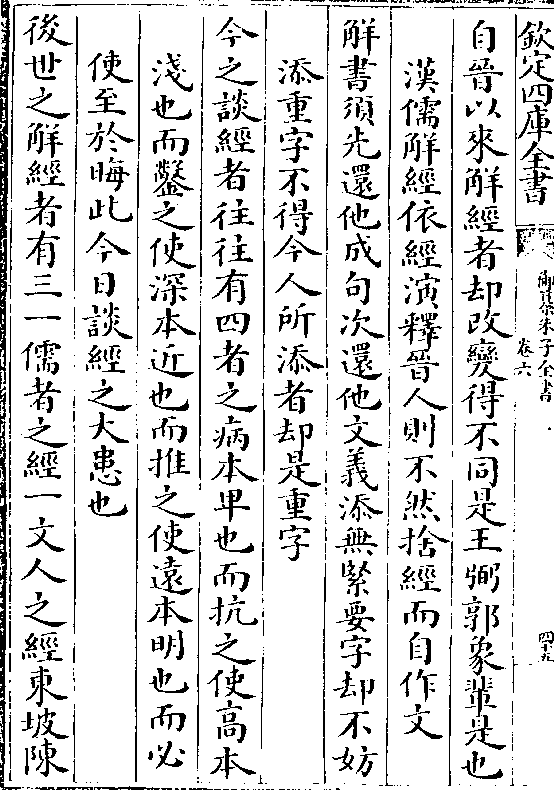 欽定四庫全書
御纂朱子全書
卷六
四十九
自晉以來解經者却改變得不同是王弼郭象輩是也
漢儒解經依經演釋晉人則不然捨經而自作文
解書須先還他成句次還他文義添無緊要字却不妨
添重字不得今人所添者却是重字
今之談經者往往有四者之病本卑也而抗之使高本
淺也而鑿之使深本近也而推之使遠本明也而必
使至於晦此今日談經之大患也
後世之解經者有三一儒者之經一文人之經東坡陳